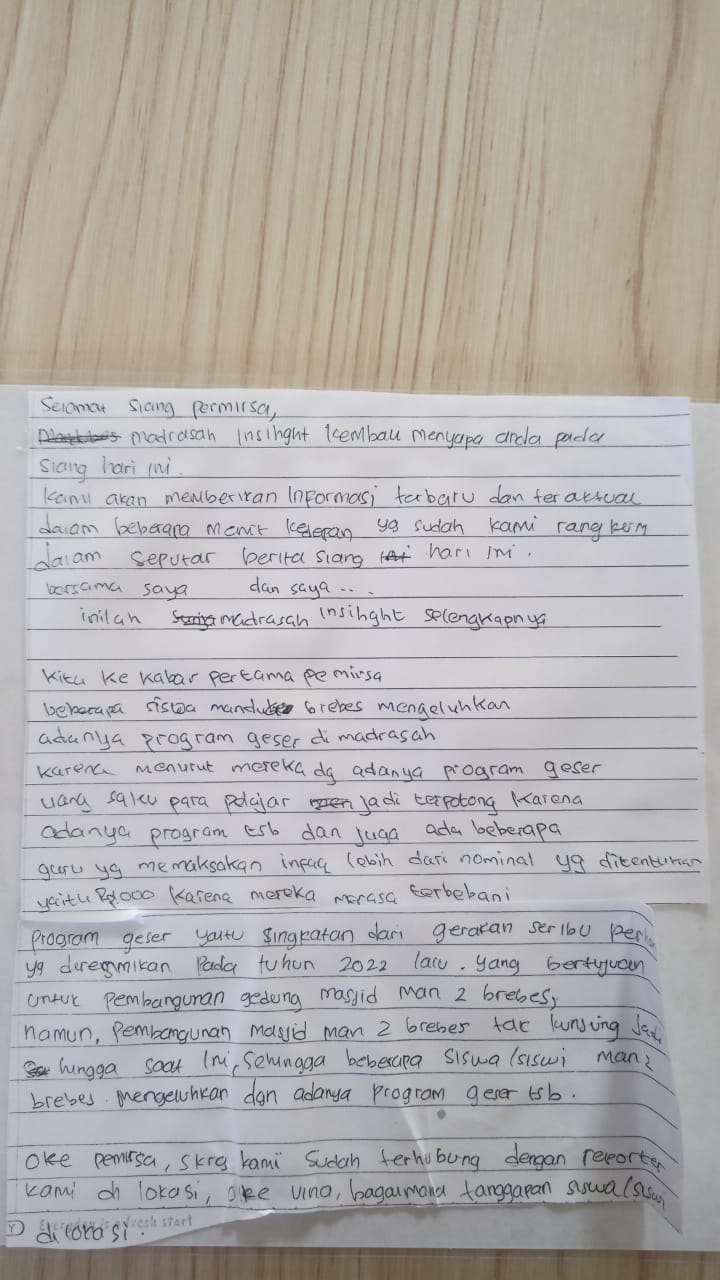 Selamat siang permirsa,
madrasah Insihght kembali menyapa anda pada
siang hari ini.
kami akan memberikan Informasi terbaru dan ter aktual
dalam beberapa menit kedepan yg sudah kami rangkum
dalam seputar berita siang hari ini.
bersama saya dan saya ...
inilah madrasah Insihght selengkapnya
kita ke kabar pertama pemirsa
beberapa siswa manduta brebes mengeluhkan
adanya program geser di madrasah
karena menurut mereka dg adanya program geser
uang saku para pelajar jadi terpotong karena
adanya program tsb dan juga ada beberapa
guru yg memaksakan infaq lebih dari nominal yg ditentukan
yaitu Rp1.000 karena mereka merasa terbebani
Program geser yaitu singkatan dari gerakan seribu perhari
yg diresmikan Pada tahun 2022 lalu. yang bertujuan
untuk pembangunan gedung masjid Man 2 brebes,
namun, Pembangunan Masjid man 2 brebes tak kunjung Jadi
hingga saat Ini, Sehingga beberapa siswa/siswi Man 2
brebes. Mengeluhkan dgn adanya Program geser tsb.
Oke pemirsa, skrg kami sudah terhubung dengan reporter
kami di lokasi, oke vina, bagaimana tanggapan siswa/siswi
di lokasi.